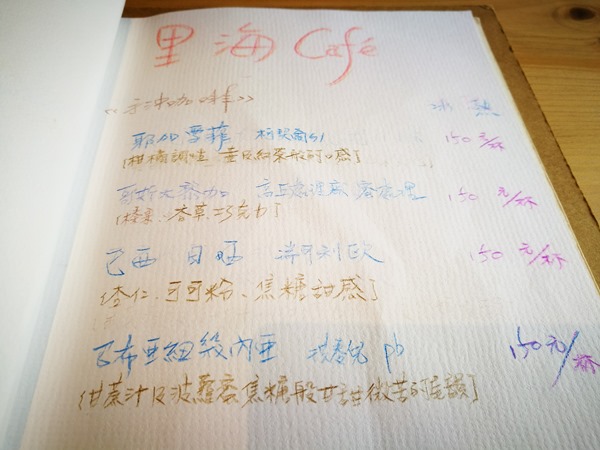 里海 Café
《手沖咖啡》 冰 熱
耶加雪菲 柯契爾G1 150元/杯
[柑橘調性 並以紅茶般的口感]
哥斯大黎加 蜜處理 150元/杯
[榛果、香草巧克力]
巴西 日晒 150元/杯
[杏仁、可可粉、焦糖甜感]
巴布亞紐幾內亞 pb 150元/杯
[甘蔗汁及波蘿蜜焦糖般甘甜微苦的尾韻]